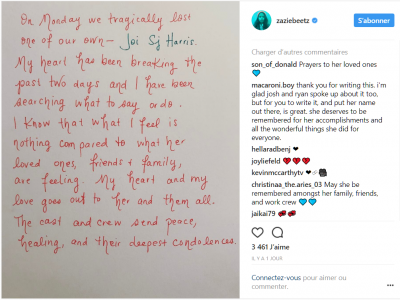 On Monday we tragically lost
one of our own — Joi SJ Harris.
My heart has been breaking the
past two days and I have been
searching what to say or do.
I know that what I feel is
nothing compared to what her
loved ones, friends & family,
are feeling. My heart and my
love goes out to her and them all.
The cast and crew send peace,
healing, and their deepest condolences.
zaziebeetz
S'abonner
Charger d'autres commentaires
son_of_donald Prayers to her loved ones
macaroni.boy thank you for writing this. i'm
glad josh and ryan spoke up about it too,
but for you to write it, and put her name
out there, is great. she deserves to be
remembered for her accomplishments and
all the wonderful things she did for
everyone.
hellaradbenj
joyliefeld
kevinmccarthytv
christina_the.aries_03 May she be
remembered amongst her family, friends,
and work crew
jaikai79
3 461 J'aime
IL Y A 1 JOUR
Connectez-vous pour aimer ou
commenter.